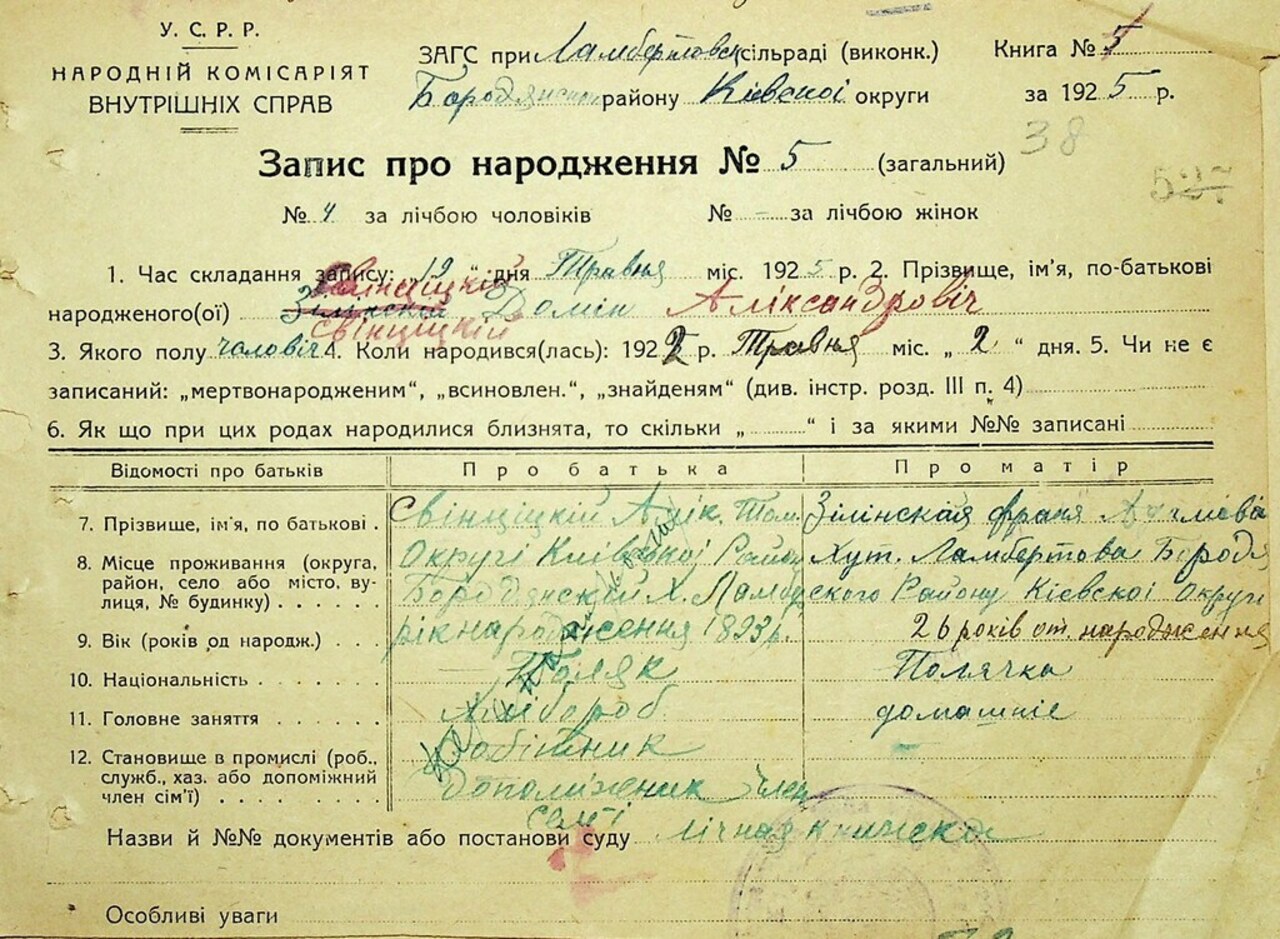 У. С. Р. Р.
НАРОДНІЙ КОМІСАРІЯТ
ВНУТРІШНІХ СПРАВ
ЗАГС при Ламбертовск сільраді (виконк.)
Бородянском району Кіевскоі округи
Книга № 5
за 1925 р.
38
Запис про народження № 5 (загальний)
№ 4 за лічбою чоловіків № – за лічбою жінок
Свінціцкій
1. Час складання запису: „19“ дня Травня міс. 1925 р. 2. Прізвище, ім’я, по-батькові
народженого(ої) Зілінскій Домін Аліксандровіч
Свінціцкій
3. Якого полу чоловіч 4. Коли народився(лась): 1922 р. Травня міс. „2“ дня. 5. Чи не є
записаний: „мертвонародженим“, „всиновлен.“, „знайденям“ (див. інстр. розд. III п. 4)
6. Як що при цих родах народилися близнята, то скільки „ “ і за якими №№ записані
Відомості про батьків Про батька Про матір
7. Прізвище, ім’я, по батькові . Свінціцкій Алік. Том. Зілінская Франя
8. Місце проживання (округа, Округі Киівськоі Район Хут. Ламбертова Бородя
район, село або місто, ву- Бородянскій Х. Ламбер ского Району Кіевскоі Округи
лиця, № будинку) . . . . . .
9. Вік (років од народж.) . . . рік народження 1893 р. 26 років от народження
10. Національність . . . . . . Поляк Полячка
11. Головне заняття . . . . . . Хлібороб домашніе
12. Становище в промислі (роб., Робітник
служб., хаз. або допоміжний Дополіженик член
член сім’ї) . . . . . . . . . семі
Назви й №№ документів або постанови суду лічная книжка
Особливі уваги